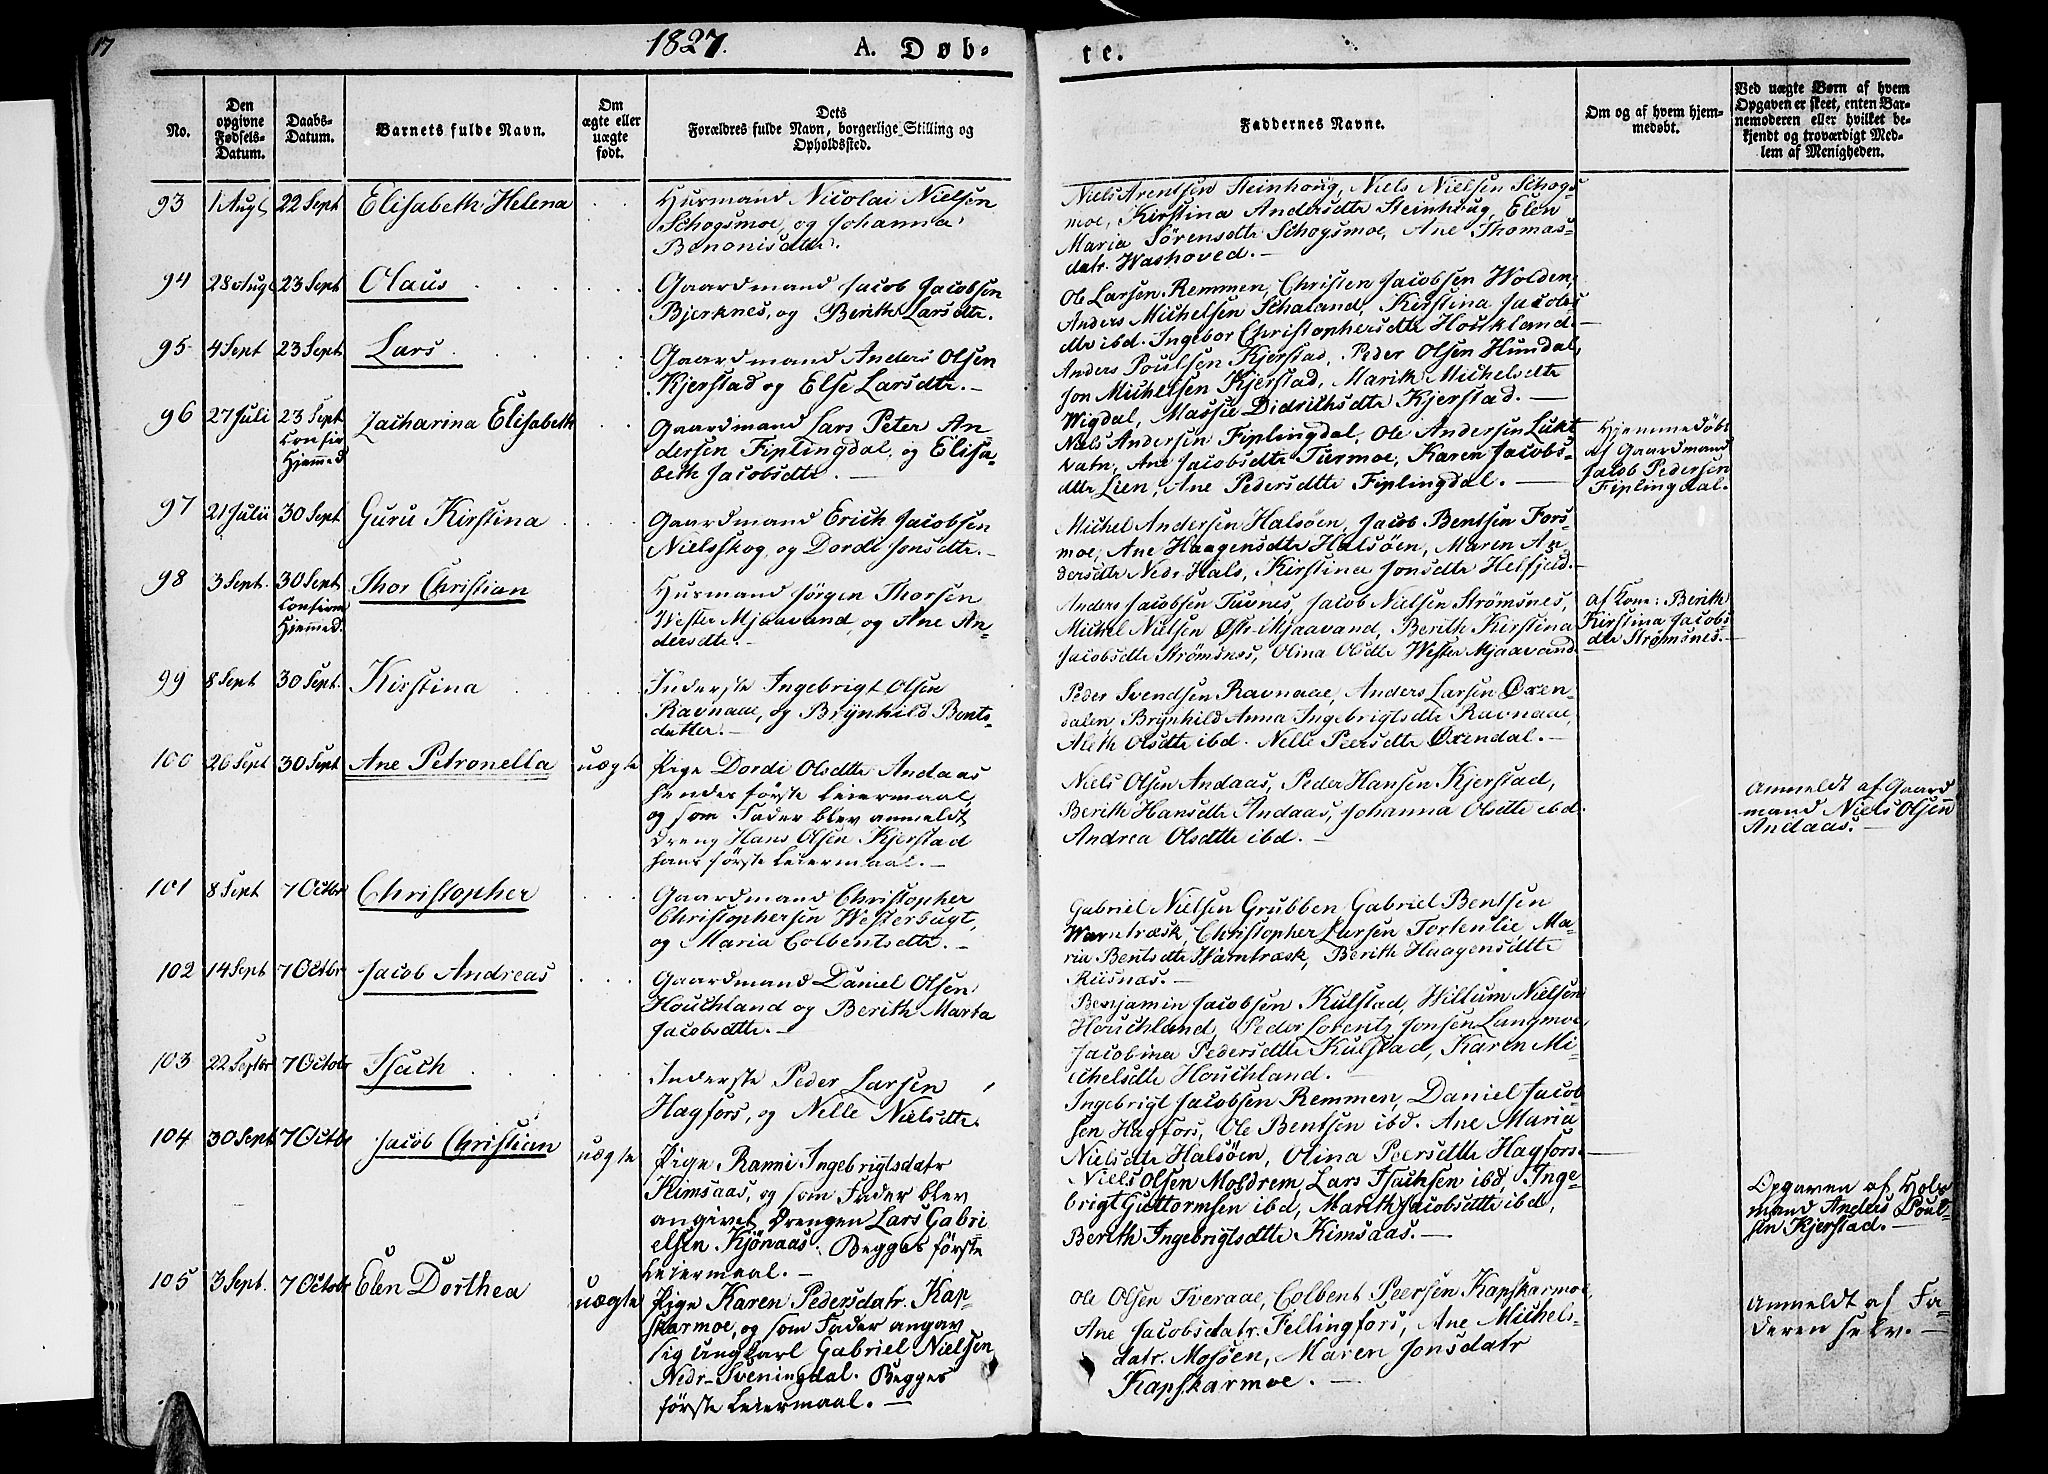 17
1827.
A. Døb-
te.
No.
Den opgivne Fødsels-Datum.
Daabs-Datum.
Barnets fulde Navn.
Om ægte eller uægte født.
Dets Forældres fulde Navn, borgerlige Stilling og Opholdssted.
Faddernes Navne.
Om og af hvem hjemmedøbt.
Ved uægte Børn af hvem Opgaven er skeet, enten Barnemoderen eller hvilket bekjendt og troværdigt Medlem af Menigheden.
93
1 Aug
22 Sept
Elisabeth Helena
Husmand Nicolai Nielsen
Schogsmoe, og Johanna
Benonisdtr.
Niels Arentsen Steinhoug, Niels Nielsen Schogs-
moe, Kirstina Andersdtr Steinhoug, Elen
Maria Sörensdtr Schogsmoe, Ane Thomas-
datr. Washoved.
94
28 Aug
23 Sept
Olaus
Gaardmand Jacob Jacobsen
Bjerknes, og Berith Larsdtr.
Ole Larsen Remmen, Christen Jacobsen Wolden,
Anders Michelsen Schaland, Kirstina Jacobs
dtr ibd. Ingebor Christophersdtr Houkland
95
4 Sept
23 Sept
Lars
Gaardmand Anders Olsen
Kjerstad og Else Larsdtr.
Anders Poulsen Kjerstad, Peder Olsen Hundal,
Jon Michelsen Kjerstad, Marith Michelsdtr
Wigdal, Massie Didrichsdtr Kjerstad.
96
27 Juli
23 Sept
Confir
Hjemmed
Zacharina Elisabeth
Gaardmand Lars Peter An
dersen Fiplingdal, og Elisa-
beth Jacobsdtr.
Niels Andersen Fiplingdal, Ole Andersen Lukt
vatn, Ane Jacobsdtr Turmoe, Karen Jacobs-
dtr Lien, Ane Pedersdtr Fiplingdal.
Hjemmedöbt
af Gaardmand
Jacob Pedersen
Fiplingdal.
97
21 Julii
30 Sept
Guru Kirstina
Gaardmand Erich Jacobsen
Nielsskog, og Dordi Jonsdtr.
Michel Andersen Halsöen, Jacob Bentsen Fors-
moe, Ane Haagensdtr Halsöen, Maren An
dersdtr Nedr Hals, Kirstina Jonsdtr Helfjeld.
98
3 Sept.
30 Sept
Confirm
Hjemmed.
Thor Christian
Husmand Jörgen Thorsen
Wester Mjaavand, og Ane An-
dersdtr.
Anders Jacobsen Tuvnes, Jacob Nielsen Strömsnes,
Michel Nielsen Øster Mjaavand, Berith Kirstina
Jacobsdtr Strömsnes, Olina Olsdtr Wester Mjaavand
af Kone: Berith
Kirstina Jacobs
dtr Strømsnes.
99
8 Sept
30 Sept.
Kirstina
Inderste Ingebrigt Olsen
Ravnaae, og Brynhild Bents-
datter.
Peder Svendsen Ravnaae, Anders Larsen Øxen-
dalen Brynhild Anna Ingebrigtsdtr Ravnaae,
Aleth Olsdtr ibd. Nelle Peersdtr Øxendal.
100
26 Sept
30 Sept
Ane Petronella
uægte
Pige Dordi Olsdtr Andaas
hendes förste Leiermaal,
og som Fader blev anmeldt
Dreng Hans Olsen Kjerstad
hans förste Leiermaal.
Niels Olsen Andaas, Peder Hansen Kjerstad,
Berith Hansdtr Andaas, Johanna Olsdtr ibd.
Andrea Olsdtr ibd.
Anmeldt af Gaard
mand Niels Olsen
Andaas.
101
8 Sept
7 Octbr
Christopher
Gaardmand Christopher
Christophersen Westerbugt,
og Maria Colbentsdtr.
Gabriel Nielsen Grubben Gabriel Bentsen
Warntræsk, Christopher Larsen Tortenlie, Ma-
ria Bentsdtr Warntræsk, Berith Haagensdtr
Rusnæs.
102
14 Sept
7 Octbr
Jacob Andreas
Gaardmand Daniel Olsen
Houchland og Berith Marta
Jacobsdtr.
Benjamin Jacobsen Kulstad, Willum Nielsen
Houchland, Peder Lorentz Jonsen Langmoe
Jacobina Pedersdtr Kulstad, Karen Mi-
chelsdtr Houchland.
103
22 Septbr
7 Octobr
Isach
Inderste Peder Larsen
Hagfors, og Nelle Nielsdtr.
Ingebrigt Jacobsen Remmen, Daniel Jacob
sen Hagfors, Ole Bentsen ibd. Ane Maria
Nielsdtr Halsöen, Olina Peersdtr Hagfors
104
30 Sept.
7 Octbr
Jacob Christian
uægte
Pige Ranni Ingebrigtsdatr
Kimsaas, og som Fader blev
angivet Drengen Lars Gabri
elsen Kjönaas. Begges förste
Leiermaal.
Niels Olsen Mosdrem, Lars Isachsen ibd, Inge-
brigt Guttormsen ibd, Marith Jacobsdtr ibd,
Berith Ingebrigtsdtr Kimsaas.
Opgaven af Hols
mand Anders Poul-
sen Kjerstad.
105
3 Sept.
7 Octobr
Elen Dorthea
uægte
Pige Karen Pedersdatr. Kap-
skarmoe, og som Fader angav
sig Ungkarl Gabriel Nielsen
Nedr-Sveningdal. Begges
förste Leiermaal.
Ole Olsen Tveraae, Colbent Peersen Kapskarmoe,
Ane Jacobsdatr. Fellingfors, Ane Michels-
datr. Mosöen, Maren Jonsdatr
Kapskarmoe.
Anmeldt af Fa-
deren selv.